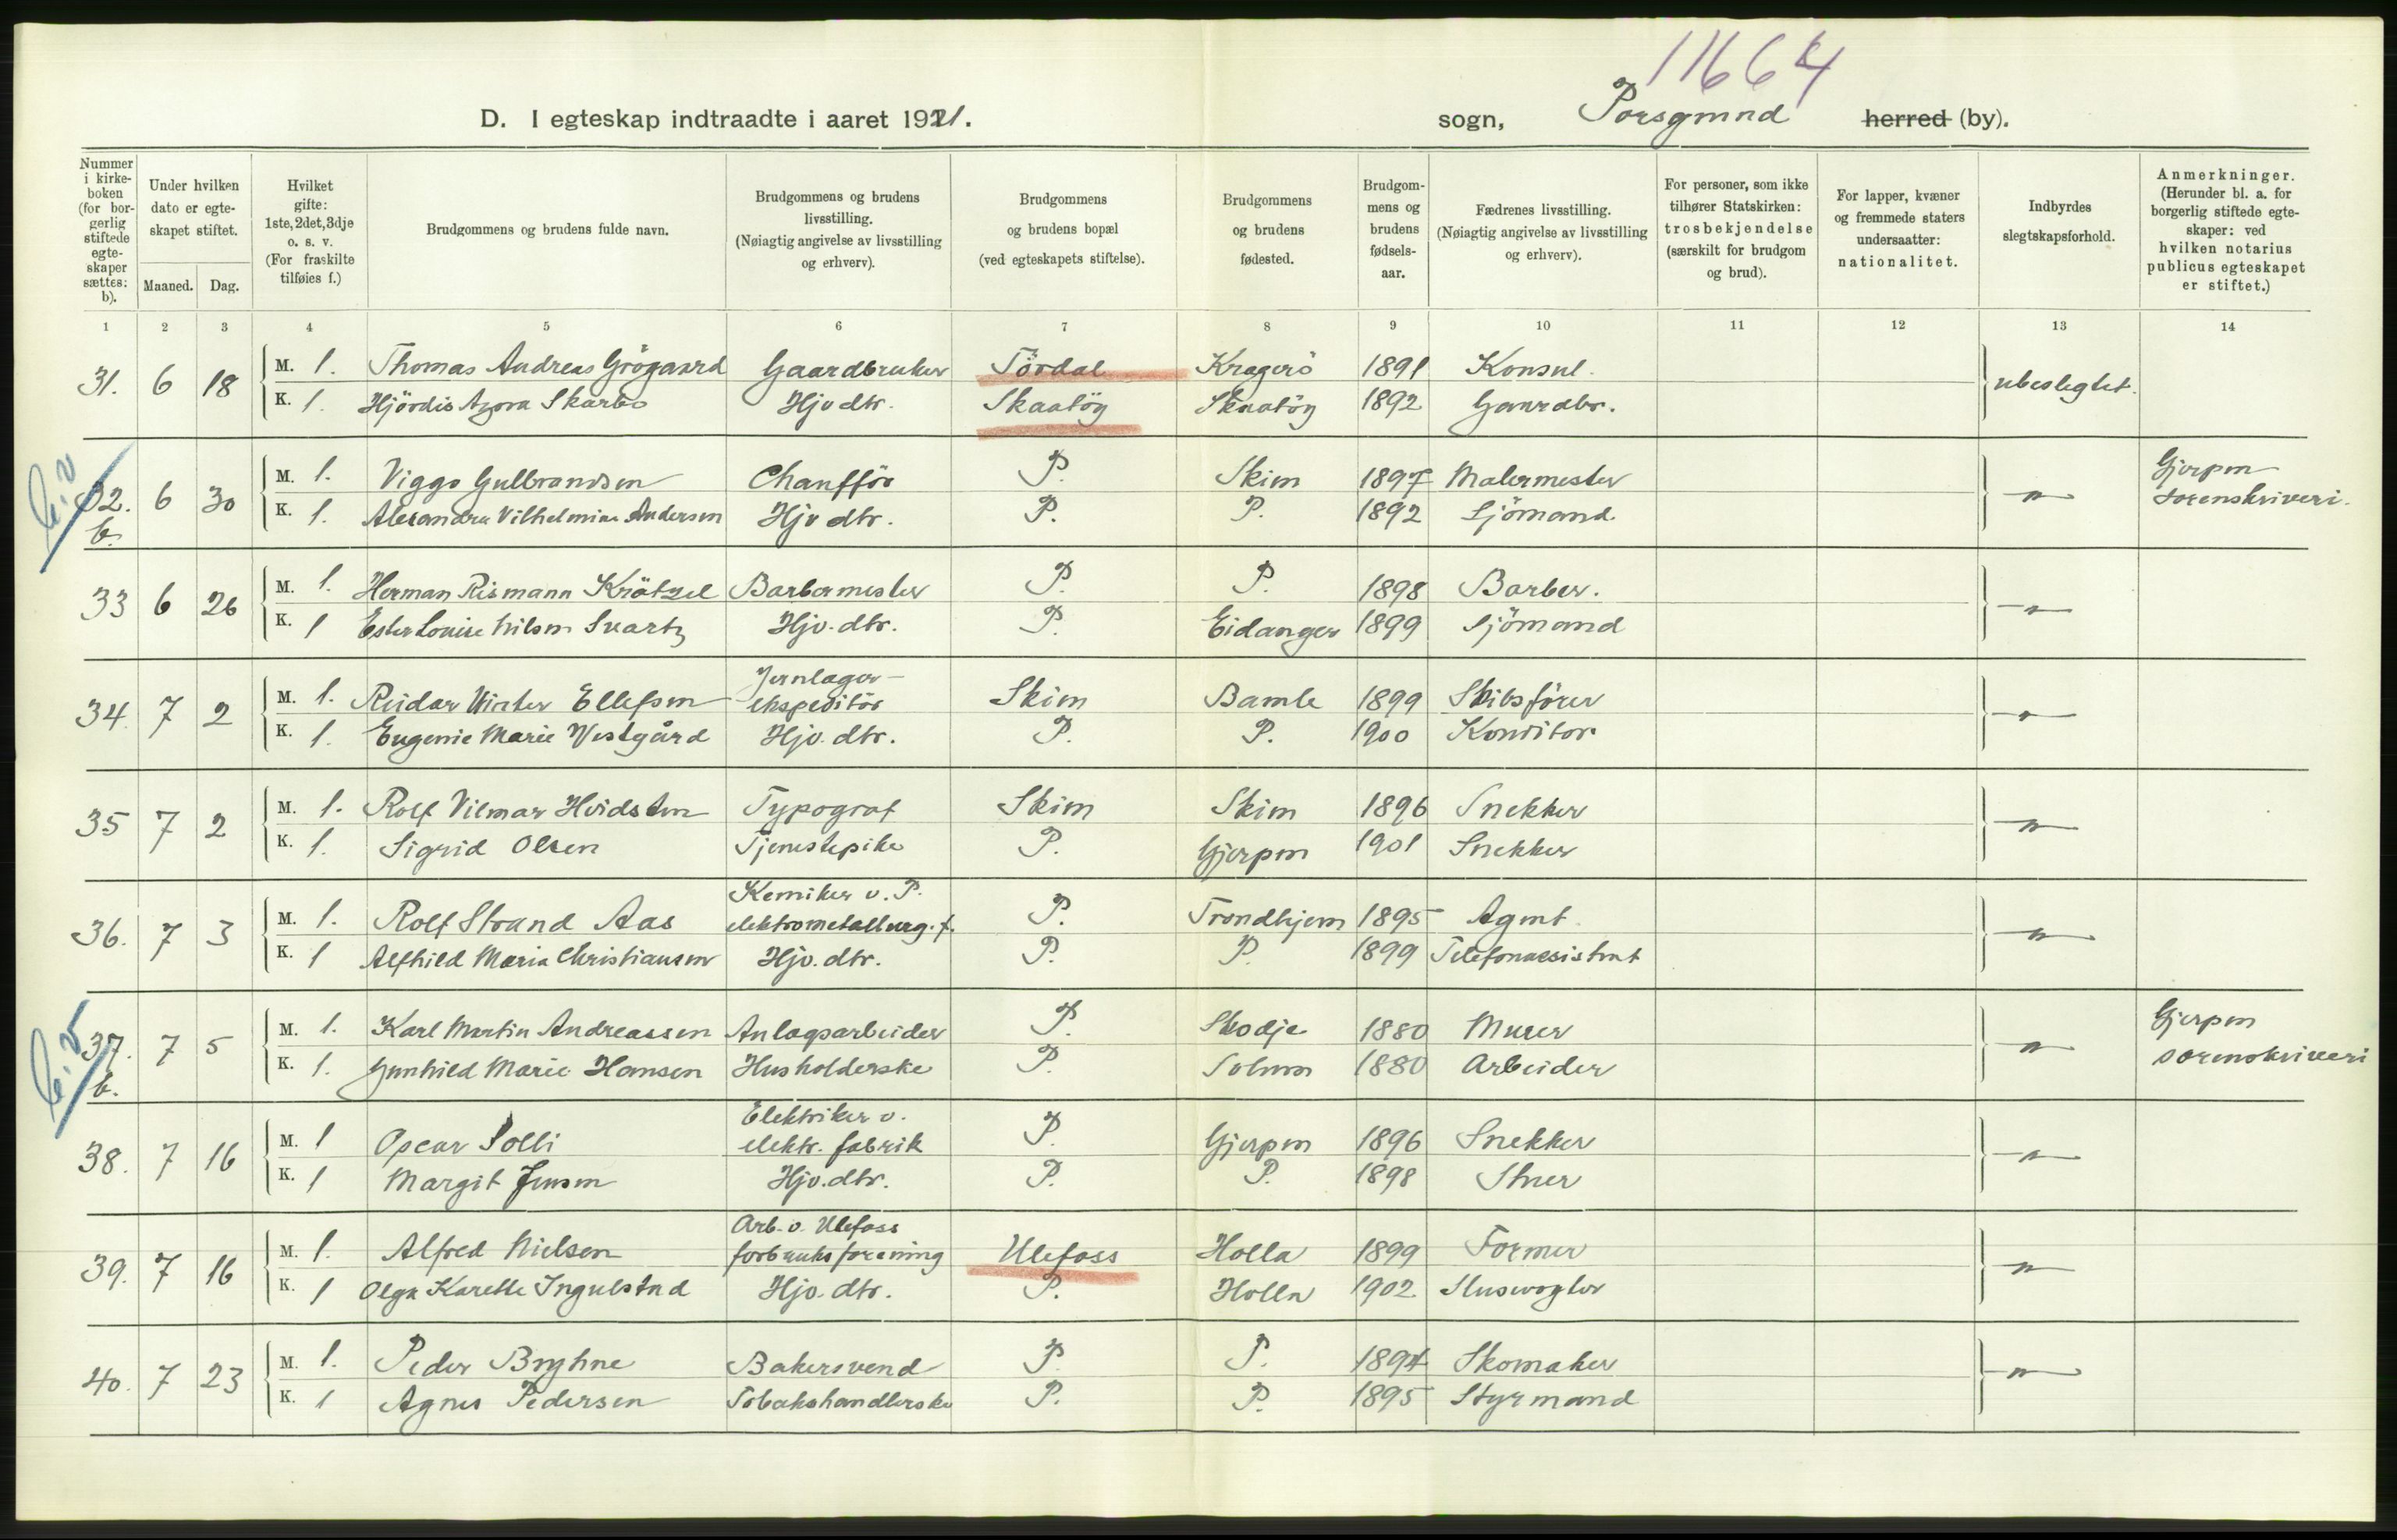 11664
D. I egteskap indtraadte i aaret 1921. sogn, Porsgrund herred (by).
Nummer i kirkeboken (for borgerlig stiftede egteskaper sættes: b).
Under hvilken dato er egteskapet stiftet.
Maaned. Dag.
Hvilket gifte: 1ste, 2det, 3dje o. s. v. (For fraskilte tilføies f.)
Brudgommens og brudens fulde navn.
Brudgommens og brudens livsstilling. (Nøiagtig angivelse av livsstilling og erhverv).
Brudgommens og brudens bopæl (ved egteskapets stiftelse).
Brudgommens og brudens fødested.
Brudgommens og brudens fødselsaar.
Fædrenes livsstilling. (Nøiagtig angivelse av livsstilling og erhverv).
For personer, som ikke tilhører Statskirken: trosbekjendelse (særskilt for brudgom og brud).
For lapper, kvæner og fremmede staters undersaatter: nationalitet.
Indbyrdes slegtskapsforhold.
Anmerkninger. (Herunder bl. a. for borgerlig stiftede egteskaper: ved hvilken notarius publicus egteskapet er stiftet.)
1 2 3 4 5 6 7 8 9 10 11 12 13 14
31. 6 18 M. 1. Thomas Andreas Grögaard Gaardbruker Tördal Kragerö 1891 Konsul. ubeslegtet.
K. 1. Hjördis Agora Skarbo Hjv dtr. Skaatöy Skaatöy 1892 Gaardbr.
b.v
32. b. 6 30 M. 1. Viggo Gulbrandsen Chaufför P. Skien 1897 Malermester — " — Gjerpen sorenskriveri.
K. 1. Alexandra Vilhelmine Andersen Hjv dtr. P. P. 1892 Sjömand.
33 6 26 M. 1. Herman Rismann Krätzel Barbermester P. P. 1898 Barber. — " —
K. 1 Ester Louise Nilsen Svartz Hjv. dtr. P. Eidanger 1899 Sjömand
34. 7 2 M. 1. Reidar Winter Ellefsen Jernlager-ekspeditör Skien Bamle 1899 Skibsförer — " —
K. 1. Eugenie Marie Vestgård Hjv. dtr. P. P. 1900 Konditor
35 7 2 M. 1. Rolf Vilmar Hvidsten Typograf Skien Skien 1896 Snekker — " —
K. 1. Sigrid Olsen Tjenestepike P. Gjerpen 1901 Snekker
36. 7 3 M. 1. Rolf Strand Aas Kemiker v. P. elektrometallurg. f. P. Trondhjem 1895 Agent — " —
K. 1 Alfhild Maria Christiansen Hjv. dtr. P. P. 1899 Telefonassistent
b.v
37. b. 7 5 M. 1. Karl Martin Andreassen Anlægsarbeider P. Skodje 1880 Murer — " — Gjerpen sorenskriveri
K. 1. Gunhild Marie Hansen Husholderske P. Solum 1880 Arbeider
38. 7 16 M. 1 Oscar Solli Elektriker v. elektr. fabrik P. Gjerpen 1896 Snekker — " —
K. 1 Margit Jensen Hjv. dtr. P. P. 1898 Stuer
39. 7 16 M. 1. Alfred Nielsen Arb. v. Ulefoss forbruksforening Ulefoss Holla 1899 Former — " —
K. 1 Olga Karette Ingulstad Hjv. dtr. P. Holla 1902 Slusevogter
40. 7 23 M. 1. Peder Bryhne Bakersvend P. P. 1894 Skomaker — " —
K. 1 Agnes Pedersen Tobakshandlerske P. P. 1895 Styrmand